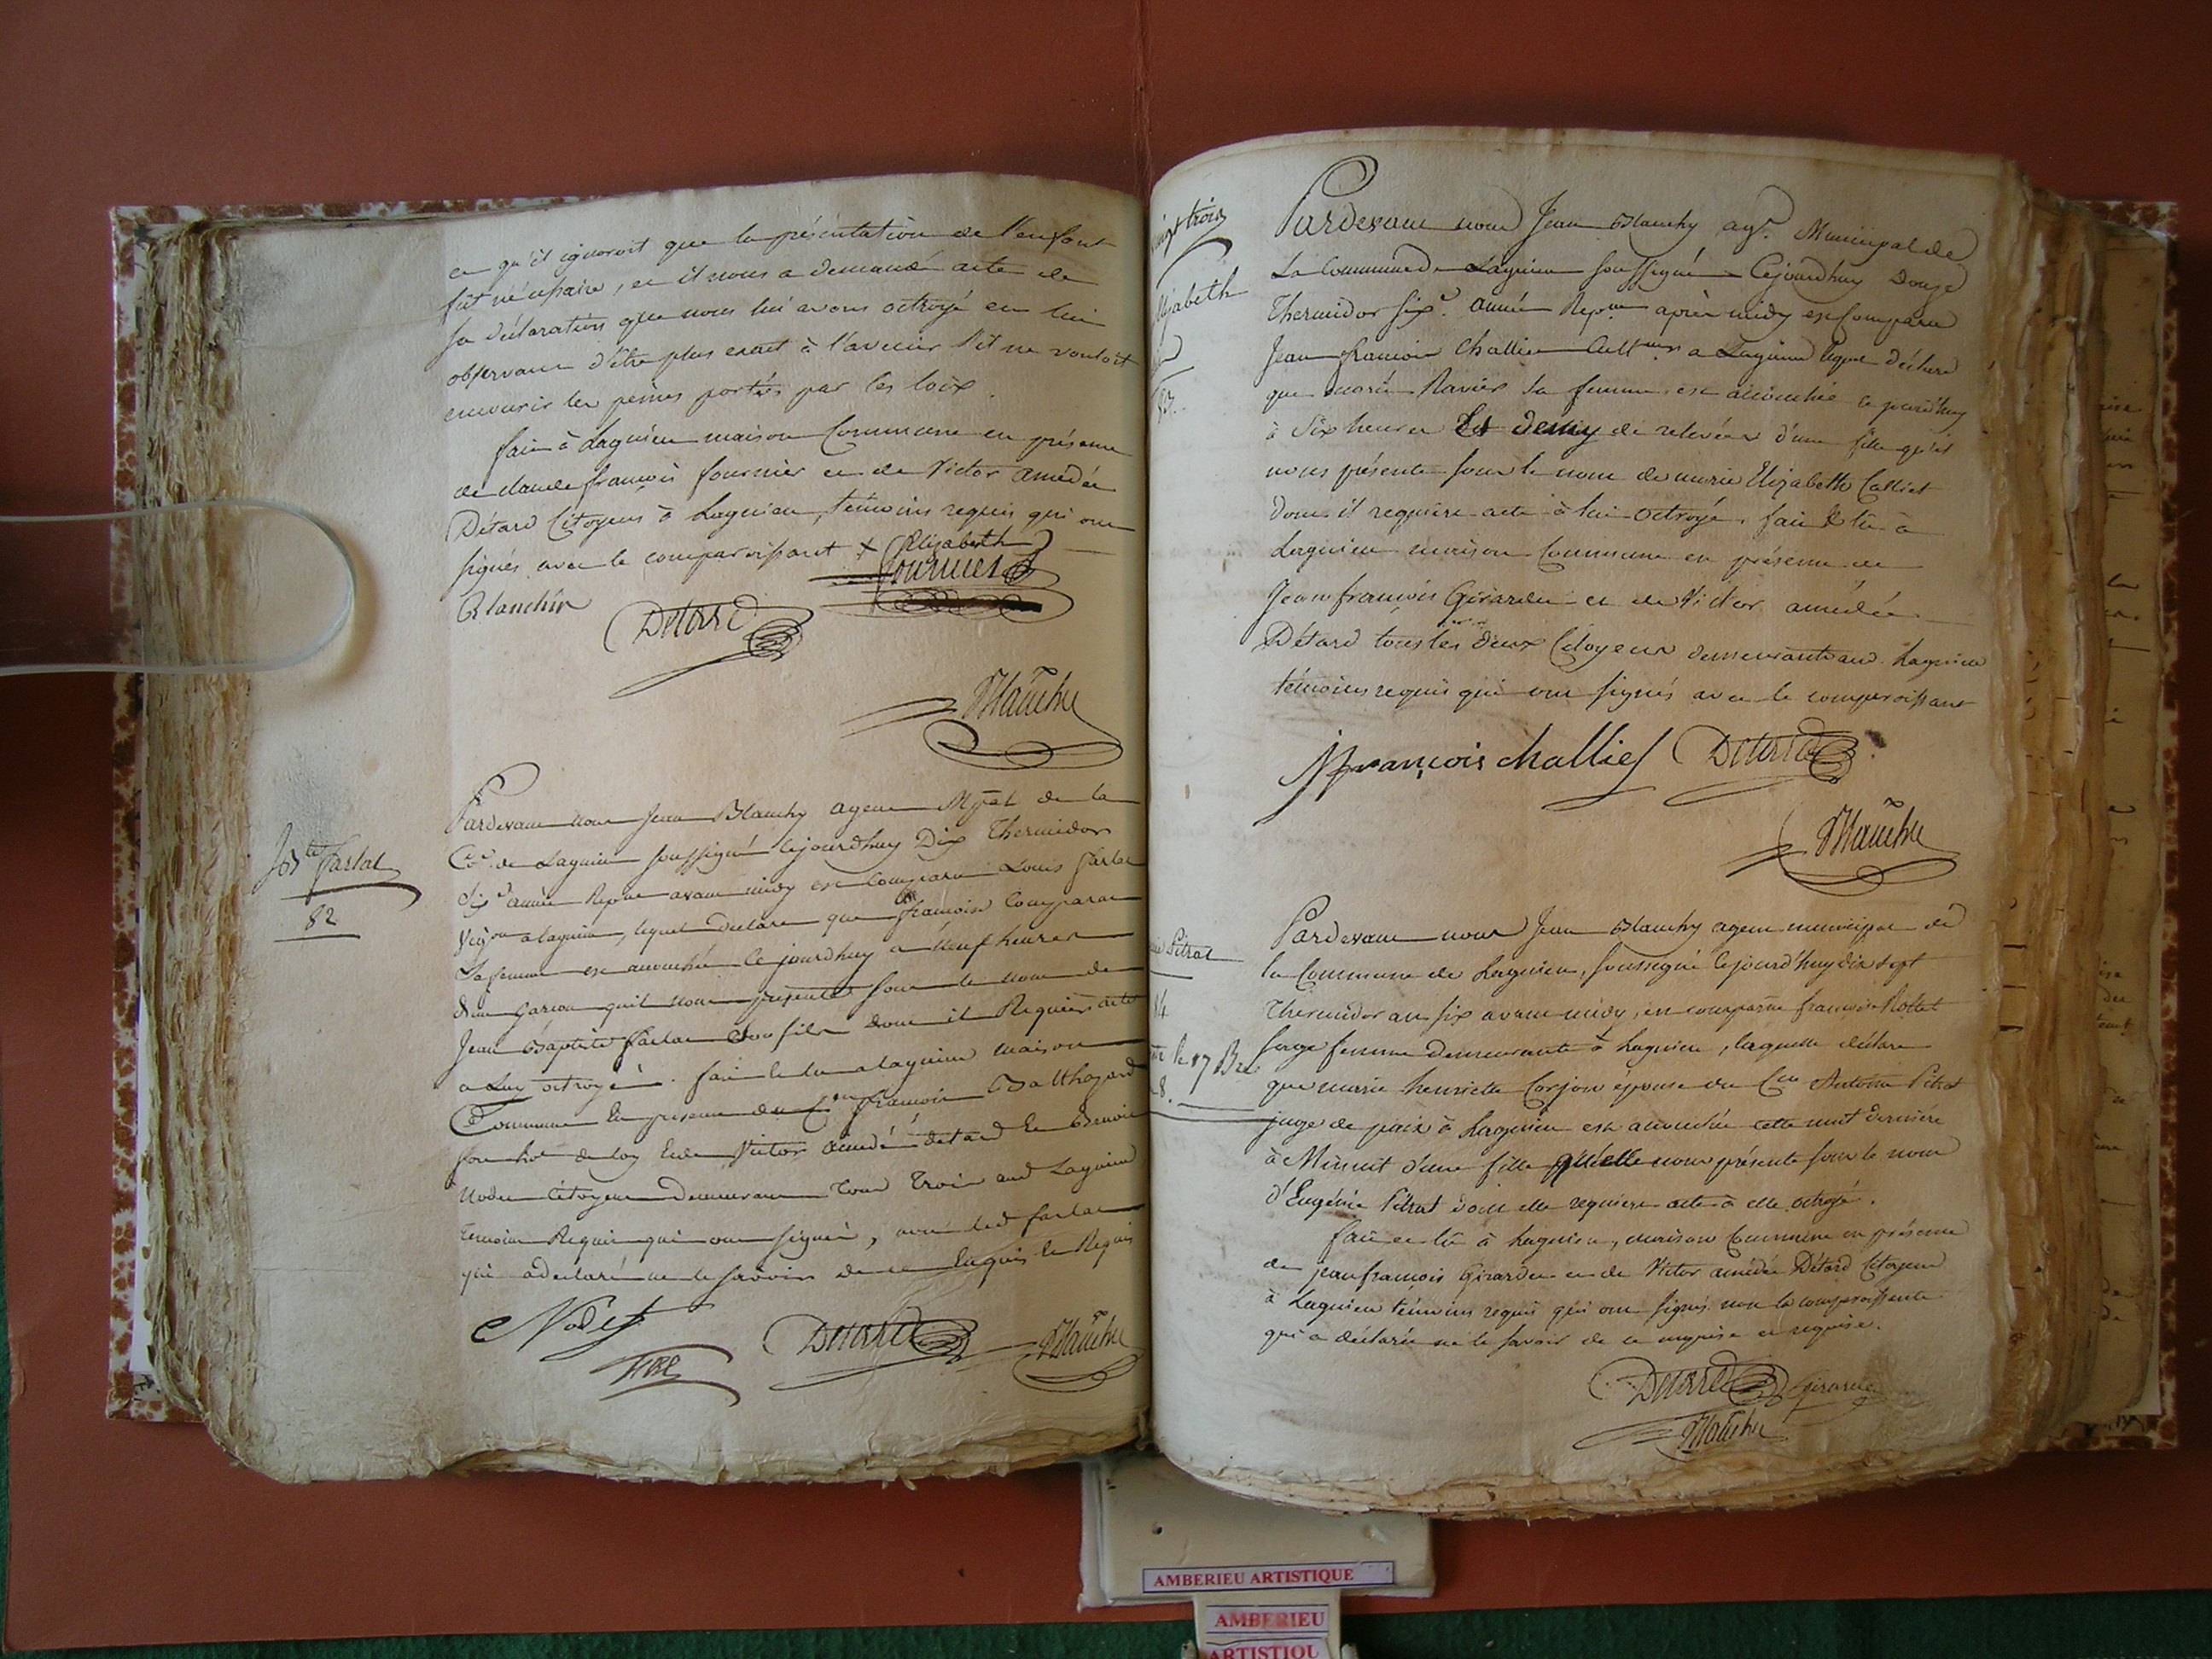 en qu'il ignoroit que la présentation de l'enfant
fût nécessaire, et il nous a demandé acte de
sa déclaration que nous lui avons octroyé en lui
observant d'être plus exact à l'avenir s'il ne vouloit
encourir les peines portées par les loix.
fait à Lagnieu maison Commune en présence
de claude françois fournier et de Victor amédée
Détard Citoyens à Lagnieu, témoins requis qui ont
signés avec le comparoissant x Elisabeth
Blanchin Détard fournier
Blanchy
Jn Bte farlat
82
Pardevant nous Jean Blanchy agent Mpal de la
Cne de Lagnieu soussigné Cejourdhuy Dix Thermidor
Sixe année Repne avant midy est Comparu Louis farlat
a lagnieu, lequel declare que françoise Comparat
Sa femme est accouchée Ce jourdhuy a neuf heures
d'un garcon quil nous presente sous le nom de
Jean Baptiste farlat Son fils dont il Requiert acte
a Luy octroyé. fait et lu a lagnieu maison
Commune En presence du Cen francois Balthazard
hoe de loy Et de Victor amédé detard Et Benoit
Nodet Citoyens Demeurant Tous Trois aud Lagnieu
Temoins Requis qui ont signé, non led farlat
qui a déclaré ne le savoir de ce Enquis et Requis
Nodet Détard Blanchy
vingt trois
Elizabeth
83.
Pardevant nous Jean Blanchy agt. Municipal de
La Commune de Lagnieu soussigné Cejourdhuy Douze
Thermidor Sixe. année Repne après midy est Comparu
Jean francois Challiet Cultur a Lagnieu lequel déclare
que marie Ravier sa femme est accouchée ce jourdhuy
à Six heures Et demy de relevée d'une fille qu'il
nous présente sous le nom de marie Elizabeth Calliet
dont il requiere acte à lui octroyé. fait & lu à
Lagnieu maison Commune en présence de
Jean françois Girardet et de Victor amédée
Détard tous les deux Citoyens demeurants aud. Lagnieu
témoins requis qui ont signés avec le comparoissant
J françois challiet Détard
Blanchy
Pitrat
84
le 17 Bre
8.
Pardevant nous Jean Blanchy agent municipal de
la Commune de Lagnieu, soussigné cejourd'huy dix sept
Thermidor an six avant midy, est comparue francoise Rottet
sage femme demeurante à Lagnieu, laquelle déclare
que marie henriette Corjon épouse du Cen Antoine Pitrat
juge de paix à Lagnieu est accouchée cette nuit dernière
à Minuit d'une fille qu'elle nous présente sous le nom
d'Eugénie Pitrat dont elle requiere acte à elle octroyé.
fait et lu à Lagnieu, maison Commune en présence
de jean francois Girardet et de Victor amédée Détard Citoyens
à Lagnieu témoins requis qui ont signés non la comparoissante
qui a déclarée ne le savoir de ce enquise et requise.
Détard Girardet
Blanchy
AMBERIEU ARTISTIQUE
AMBERIEU